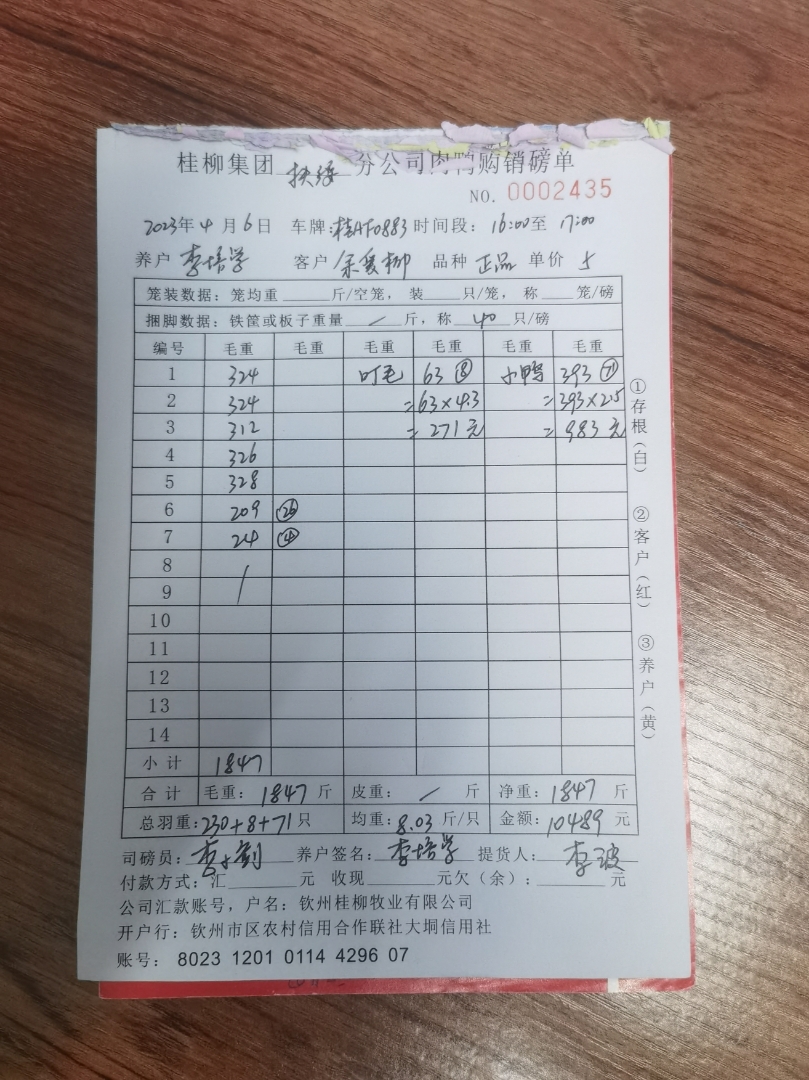 桂柳集团 扶绥 分公司肉鸭购销磅单
NO. 0002435
2023年4月6日 车牌:桂AF0883 时间段: 16:00至 17:00
养户 李培学 客户 余爱柳 品种 正品 单价 5
笼装数据: 笼均重 斤/空笼, 装 只/笼, 称 笼/磅
捆脚数据: 铁筐或板子重量 / 斤, 称 40 只/磅
编号 毛重 毛重 毛重 毛重 毛重 毛重
1 324 叮毛 63 ⑧ 小鸭 393 (71)
2 324 =63×4.3 =393×2.5
3 312 = 271元 = 983元
4 326
5 328
6 209 ㉖
7 24 ④
8 /
9
10
11
12
13
14
小计 1847
合计 毛重: 1847 斤 皮重: / 斤 净重: 1847 斤
总羽重: 230+8+71 只 均重: 8.03 斤/只 金额: 10489 元
司磅员: 养户签名: 李培学 提货人: 李波
付款方式: 汇 元 收现 元欠(余): 元
公司汇款账号, 户名: 钦州桂柳牧业有限公司
开户行: 钦州市区农村信用合作联社大垌信用社
账号: 8023 1201 0114 4296 07
①存根(白)
②客户(红)
③养户(黄)